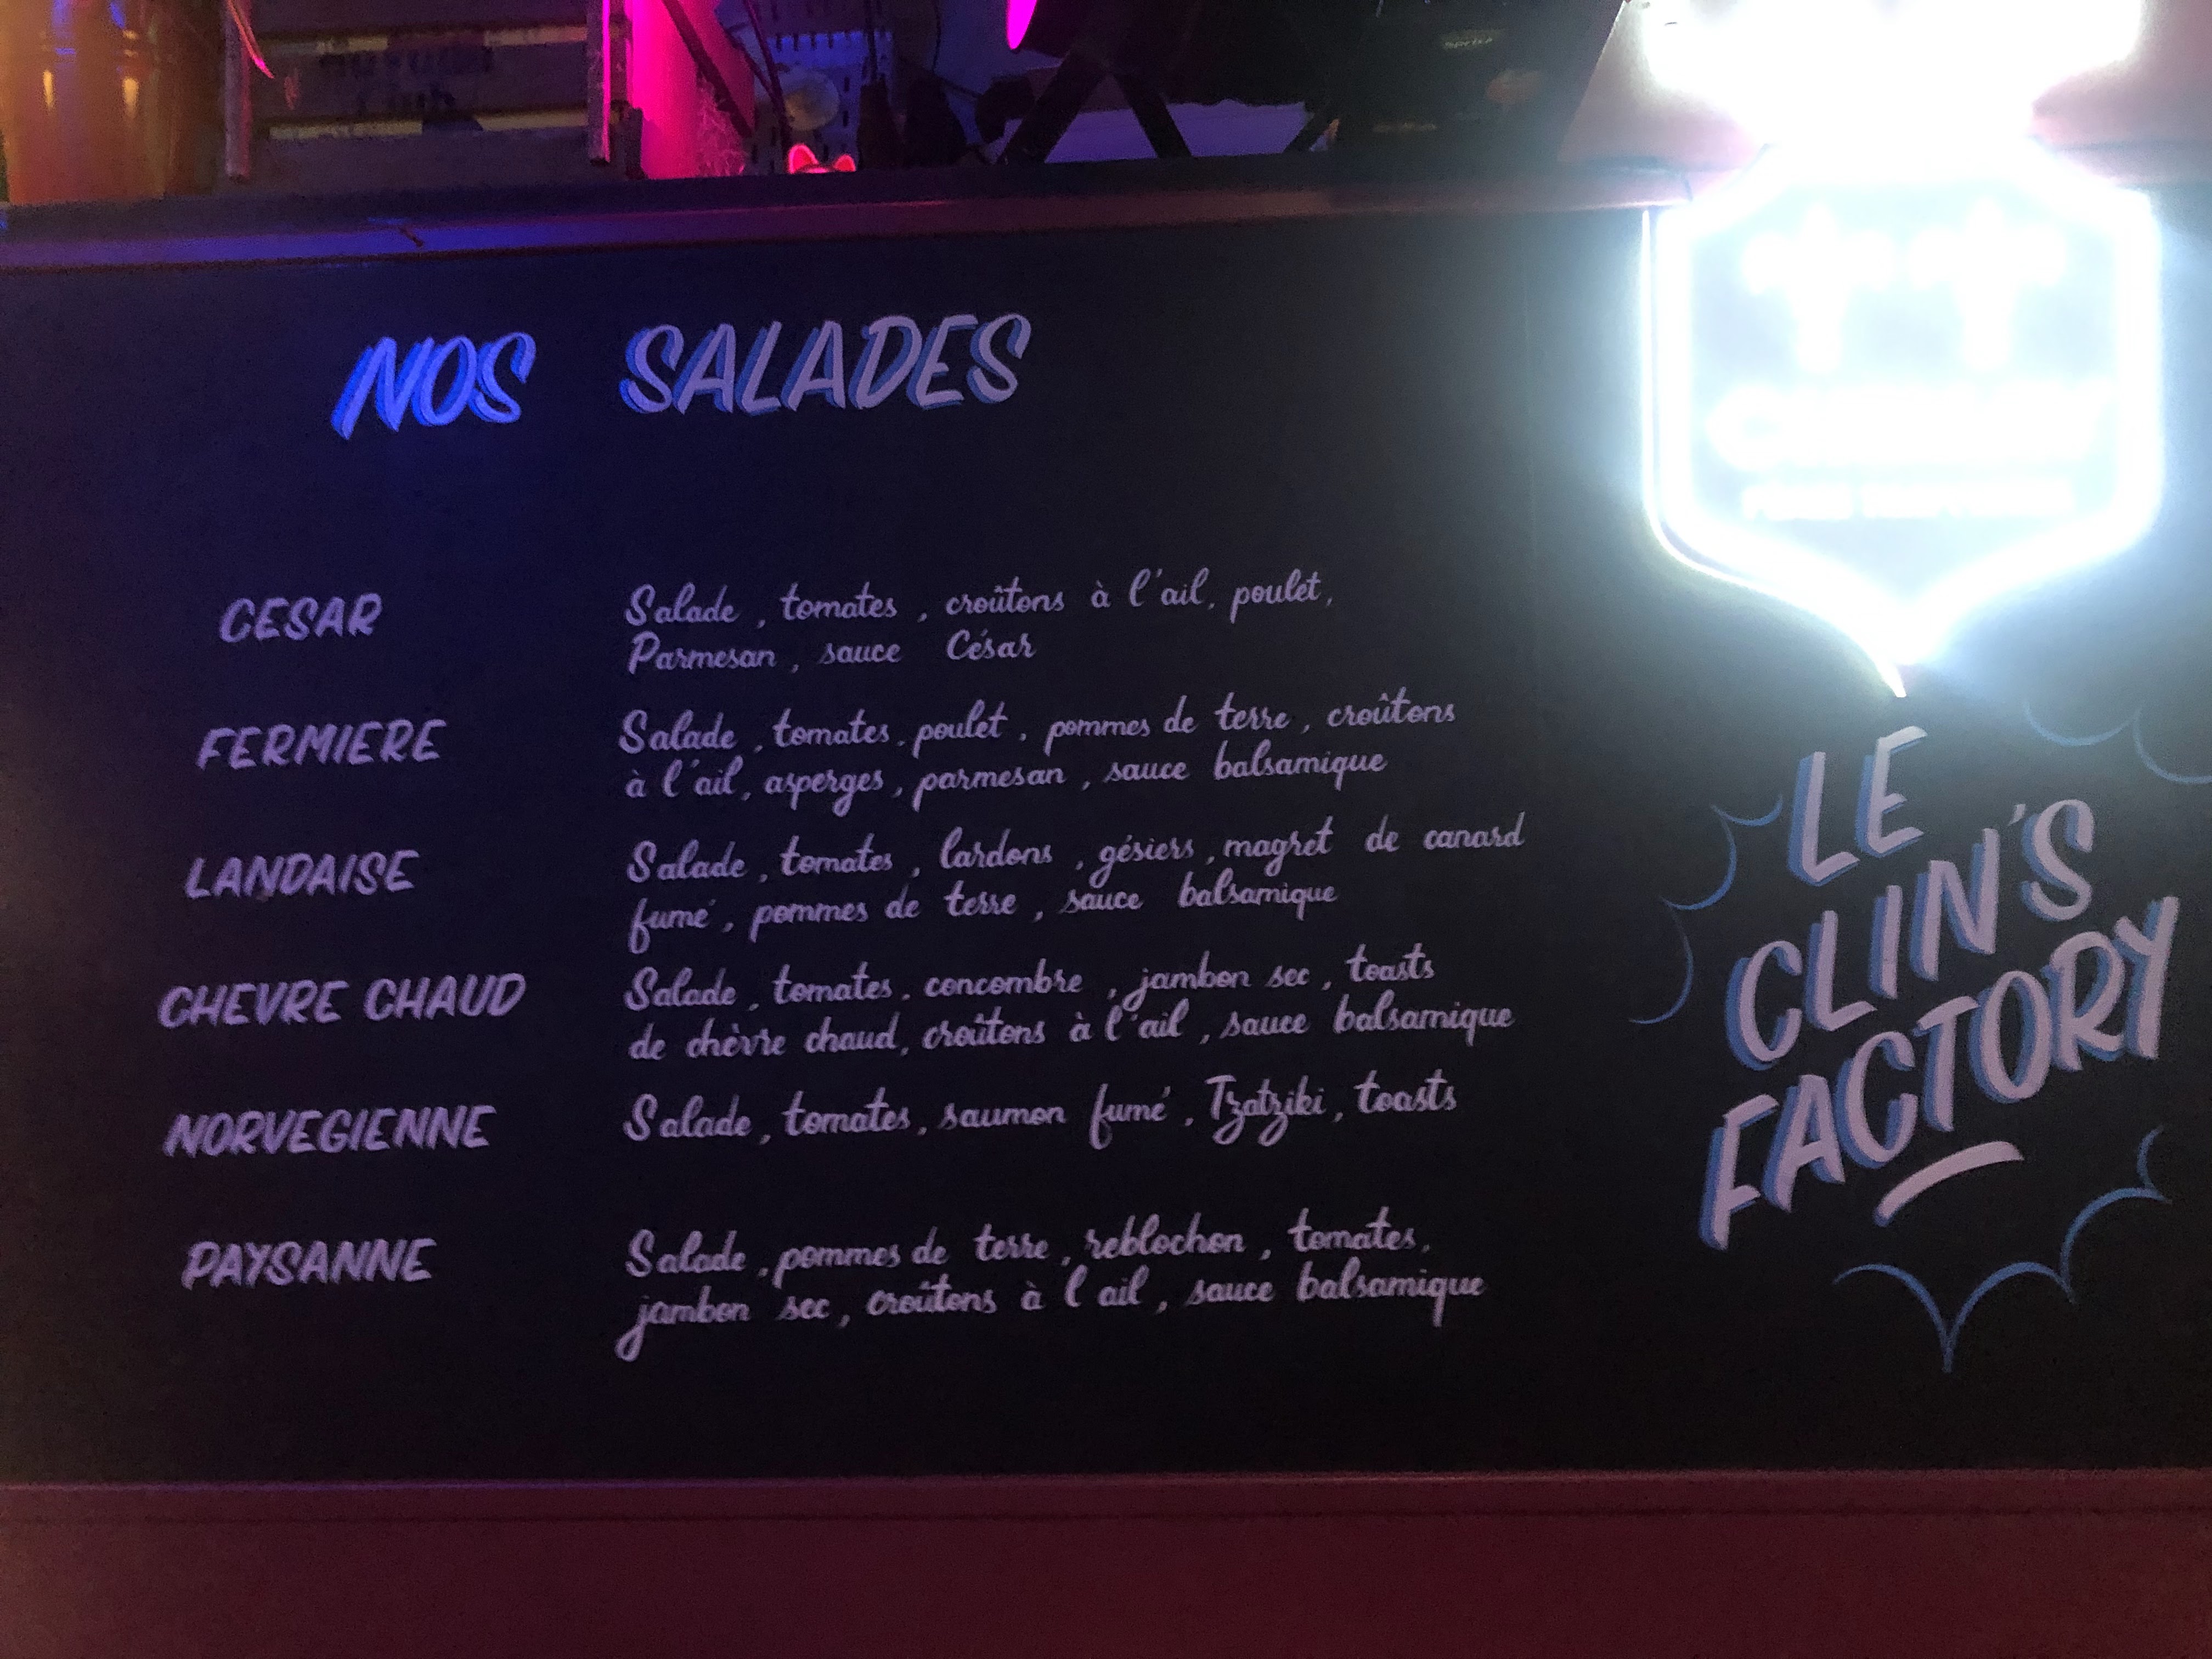 NOS SALADES
CESAR
Salade, tomates, croûtons à l'ail, poulet,
Parmesan, sauce César
FERMIERE
Salade, tomates, poulet, pommes de terre, croûtons
à l'ail, asperges, parmesan, sauce balsamique
LANDAISE
Salade, tomates, lardons, gésiers, magret de canard
fumé, pommes de terre, sauce balsamique
CHEVRE CHAUD
Salade, tomates, concombre, jambon sec, toasts
de chèvre chaud, croûtons à l'ail, sauce balsamique
NORVEGIENNE
Salade, tomates, saumon fumé, Tzatziki, toasts
PAYSANNE
Salade, pommes de terre, reblochon, tomates,
jambon sec, croûtons à l'ail, sauce balsamique
LE
CLIN'S
FACTORY